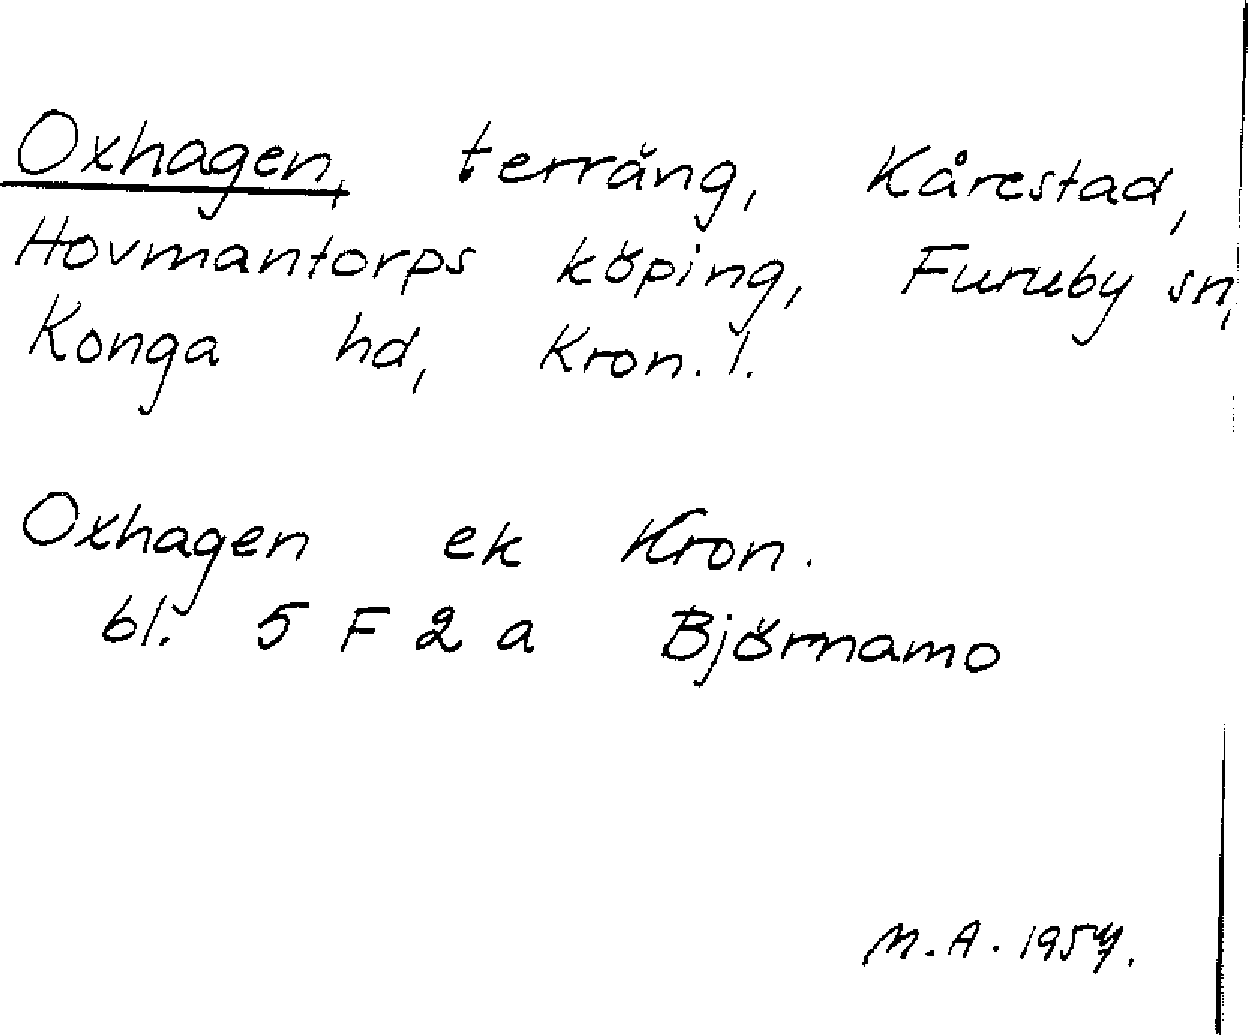 Oxhagen, terräng, Kårestad,
Hovmantorps köping, Furuby sn,
Konga hd, Kron. l.
Oxhagen ek Kron.
bl. 5 F 2 a Björnamo
M.A.